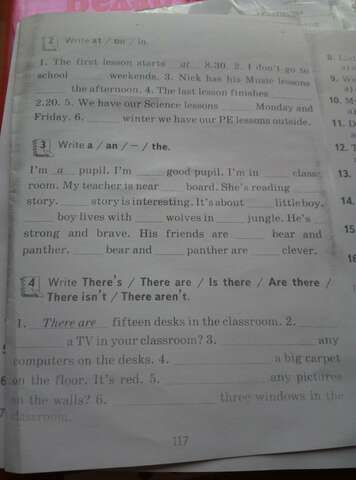 2 Write at / on / in.
1. The first lesson starts at 8.30. 2. I don't go to
school ____ weekends. 3. Nick has his Music lessons
____ the afternoon. 4. The last lesson finishes ____
2.20. 5. We have our Science lessons ____ Monday and
Friday. 6. ____ winter we have our PE lessons outside.
3 Write a / an / – / the.
I'm a pupil. I'm ____ good pupil. I'm in ____ class-
room. My teacher is near ____ board. She's reading ____
story. ____ story is interesting. It's about ____ little boy.
____ boy lives with ____ wolves in ____ jungle. He's ____
strong and brave. His friends are ____ bear and ____
panther. ____ bear and ____ panther are ____ clever.
4 Write There's / There are / Is there / Are there /
There isn't / There aren't.
1. There are fifteen desks in the classroom. 2. ____
____ a TV in your classroom? 3. ____ any
computers on the desks. 4. ____ a big carpet
on the floor. It's red. 5. ____ any pictures
on the walls? 6. ____ three windows in the
classroom.
117
9.
10.
11.
12.
13.
14.
15.